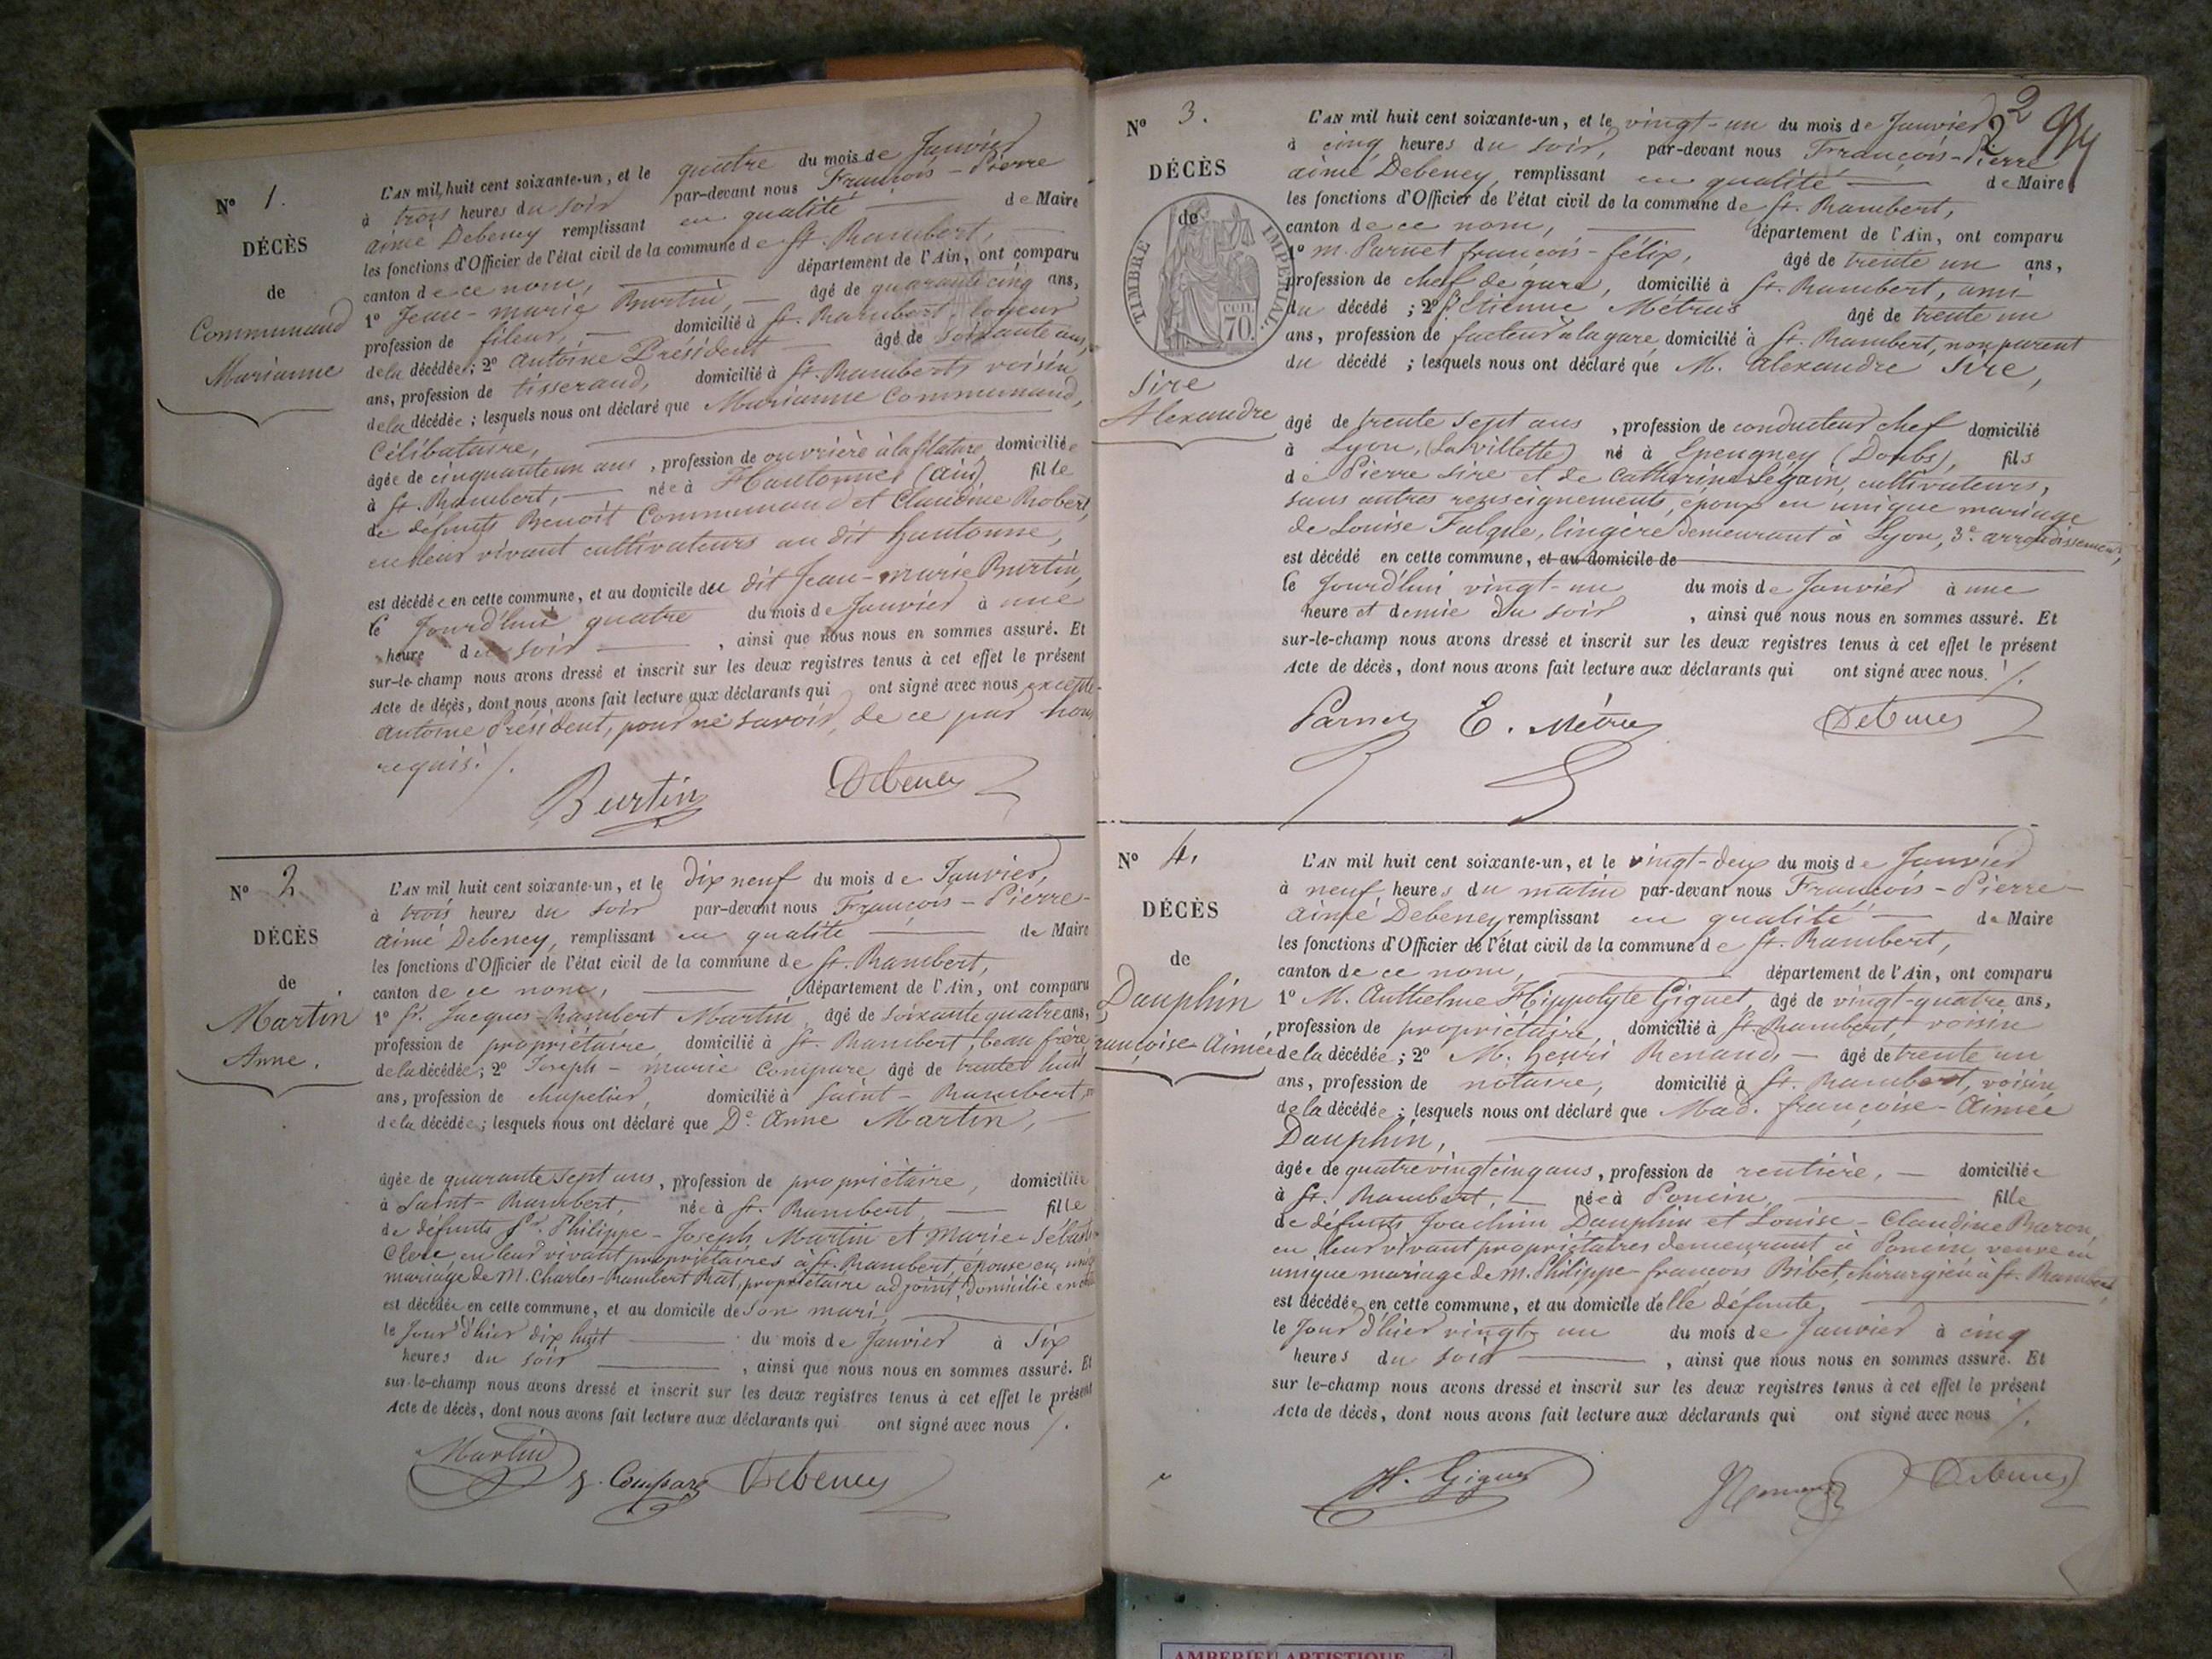 N° 1.
DÉCÈS
de
Communaud
Marianne
L'AN mil huit cent soixante-un, et le quatre du mois de Janvier
à trois heures du soir par-devant nous François-Pierre
aimé Debeney remplissant en qualité de Maire
les fonctions d'Officier de l'état civil de la commune de St. Rambert,
canton de ce nom, département de l'Ain, ont comparu
1° Jean-marie Burtin, âgé de quarante cinq ans,
profession de fileur, domicilié à St. Rambert, logeur
de la décédée; 2° antoine Président âgé de soixante ans,
ans, profession de tisserand, domicilié à St. Rambert, voisin
de la décédée; lesquels nous ont déclaré que Marianne Communaud,
Célibataire,
âgée de cinquante un ans, profession de ouvrière à la filature, domiciliée
à St. Rambert, née à Hautonnes (ain) fille
de défunts Benoit Communaud et Claudine Robert,
en leur vivant cultivateurs au dit hautonne,
est décédée en cette commune, et au domicile du dit Jean-marie Burtin,
le Jourd'hui quatre du mois de Janvier à une
heure du soir, ainsi que nous nous en sommes assuré. Et
sur-le-champ nous avons dressé et inscrit sur les deux registres tenus à cet effet le présent
Acte de décès, dont nous avons fait lecture aux déclarants qui ont signé avec nous, excepté
antoine Président, pour ne savoir, de ce par nous
requis. /.
Burtin Debeney
N° 2
DÉCÈS
de
Martin
Anne.
L'AN mil huit cent soixante-un, et le dix neuf du mois de Janvier,
à trois heures du soir par-devant nous François-Pierre-
aimé Debeney, remplissant en qualité de Maire
les fonctions d'Officier de l'état civil de la commune de St. Rambert,
canton de ce nom, département de l'Ain, ont comparu
1° Sr. Jacques-Rambert Martin âgé de soixante quatre ans,
profession de propriétaire, domicilié à St. Rambert, beau frère
de la décédée; 2° Joseph-marie Compare âgé de trente huit
ans, profession de chapelier, domicilié à Saint-Rambert,
de la décédée; lesquels nous ont déclaré que De. Anne Martin,
âgée de quarante sept ans, profession de propriétaire, domiciliée
à Saint-Rambert, née à St. Rambert, fille
de défunts Sr. Philippe-Joseph Martin et Marie-Sébast
Clerc, en leur vivant propriétaires à St. Rambert, épouse en
mariage de M. Charles-Rambert Prat, propriétaire adjoint, domicilié en
est décédée en cette commune, et au domicile de son mari,
le Jour d'hier dix huit du mois de Janvier à Six
heures du soir, ainsi que nous nous en sommes assuré. Et
sur-le-champ nous avons dressé et inscrit sur les deux registres tenus à cet effet le présent
Acte de décès, dont nous avons fait lecture aux déclarants qui ont signé avec nous /.
Martin J. Compare Debeney
2
2
N° 3.
DÉCÈS
de
TIMBRE IMPÉRIAL.
70.
Sire
Alexandre
L'AN mil huit cent soixante-un, et le vingt-un du mois de Janvier
à cinq heures du soir, par-devant nous François-Pierre
aimé Debeney, remplissant en qualité de Maire
les fonctions d'Officier de l'état civil de la commune de St. Rambert,
canton de ce nom, département de l'Ain, ont comparu
1° m. Parnet françois-félix, âgé de trente un ans,
profession de chef de gare, domicilié à St. Rambert, ami
du décédé; 2° Sr. Etienne Métrus âgé de trente un
ans, profession de facteur à la gare, domicilié à St. Rambert, non parent
du décédé; lesquels nous ont déclaré que M. Alexandre Sire,
âgé de trente sept ans, profession de conducteur chef domicilié
à Lyon, (La villette) né à Epeugney (Doubs), fils
de Pierre Sire et de Catherine Ségain, cultivateurs,
sans autres renseignements, époux en unique mariage
de Louise Falque, lingère demeurant à Lyon, 3e. arrondissement,
est décédé en cette commune, et au domicile de
le Jourd'hui vingt-un du mois de Janvier à une
heure et demie du soir, ainsi que nous nous en sommes assuré. Et
sur-le-champ nous avons dressé et inscrit sur les deux registres tenus à cet effet le présent
Acte de décès, dont nous avons fait lecture aux déclarants qui ont signé avec nous. /.
Parnet E. Métrus Debeney
N° 4.
DÉCÈS
de
Dauphin
françoise-Aimée
L'AN mil huit cent soixante-un, et le vingt-deux du mois de Janvier
à neuf heures du matin par-devant nous François-Pierre-
Aimé Debeney remplissant en qualité de Maire
les fonctions d'Officier de l'état civil de la commune de St. Rambert,
canton de ce nom, département de l'Ain, ont comparu
1° M. Anthelme Hippolyte Giguet, âgé de vingt-quatre ans,
profession de propriétaire, domicilié à St. Rambert, voisin
de la décédée; 2° M. henri Renaud, âgé de trente un
ans, profession de notaire, domicilié à St. Rambert, voisin
de la décédée; lesquels nous ont déclaré que Mad. françoise-Aimée
Dauphin,
âgée de quatre vingt cinq ans, profession de rentière, domiciliée
à St. Rambert, née à Poncin, fille
de défunts Joachim Dauphin et Louise-Claudine Baron,
en leur vivant propriétaires demeurant à Poncin, veuve en
unique mariage de M. Philippe-françois Bibet, chirurgien à St. Rambert,
est décédée en cette commune, et au domicile de lle défunte,
le Jour d'hier vingt-un du mois de Janvier à cinq
heures du soir, ainsi que nous nous en sommes assuré. Et
sur le-champ nous avons dressé et inscrit sur les deux registres tenus à cet effet le présent
Acte de décès, dont nous avons fait lecture aux déclarants qui ont signé avec nous /.
H. Giguet Debeney
AMBERIEU ARTISTIQUE